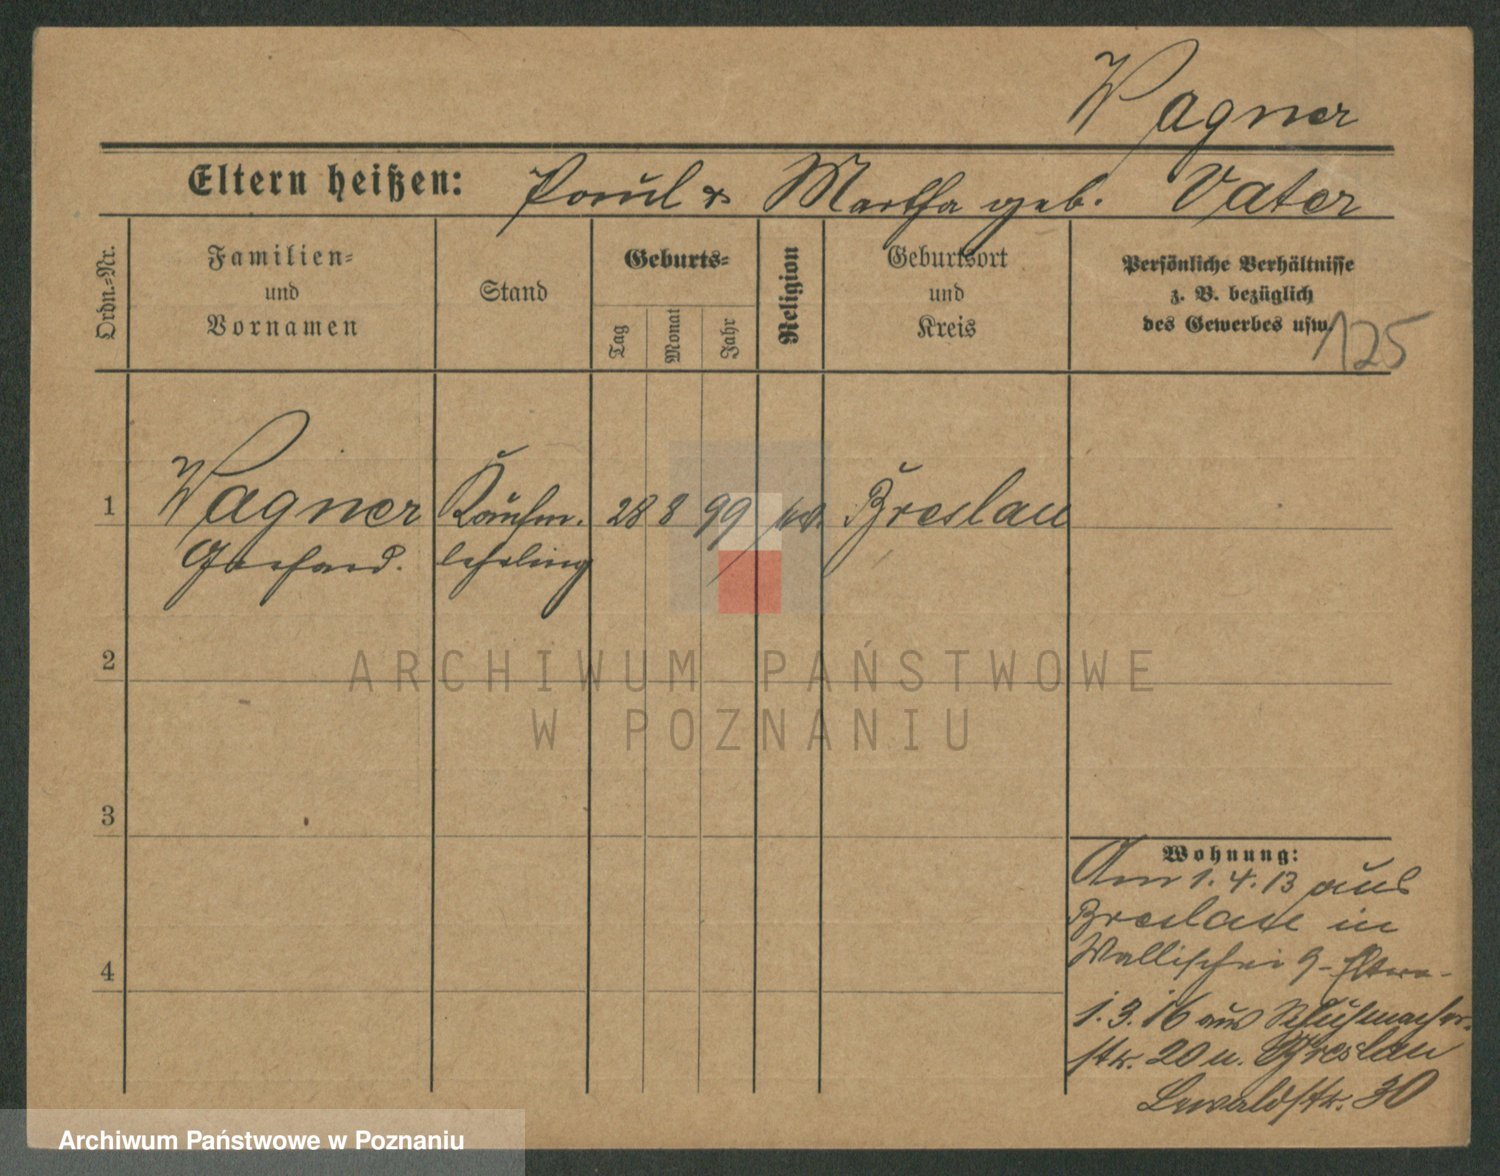 Wagner
Eltern heißen: Paul & Martha geb. Vater
Ordn.-Nr.
Familien-
und
Vornamen
Stand
Geburts-
Tag
Monat
Jahr
Religion
Geburtsort
und
Kreis
Persönliche Verhältnisse
z. B. bezüglich
des Gewerbes usw.
125
1
Wagner Kaufm. 28 8 99 Breslau
Gerhard. lehrling
2
ARCHIWUM PAŃSTWOWE
W POZNANIU
3
Wohnung:
Am 1.4.13 aus
Breslau in
Wallischei 9
4
1.3.16 aus Schuhmacher-
str. 20 n. Breslau
Lewaldstr. 30
Archiwum Państwowe w Poznaniu